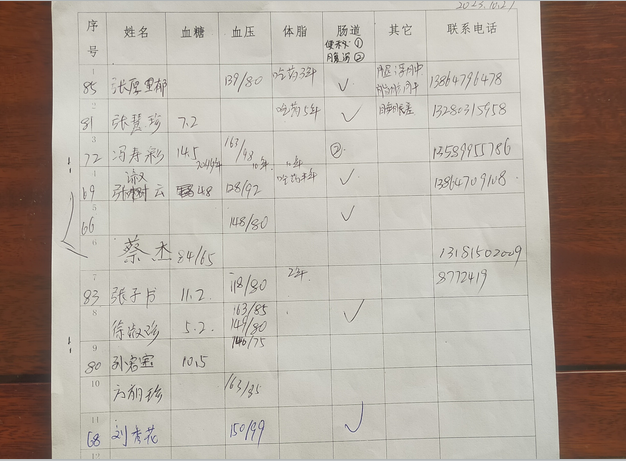 2023.10.21
序号 姓名 血糖 血压 体脂 肠道 便秘① 腹泻② 其它 联系电话
1 85 139/80 吃药3年 ✓ 13864796478
2 81 张慧珍 7.2 吃药5年 ✓ 13280315958
3 72 冯寿彩 14.5 163/98 ② 13589955786
4 69 张淑云 4.8 128/92 ✓ 13864709108
5 66 148/80 ✓
6 蔡杰 84/65 13181502009
7 83 张子书 11.2 118/80 2年 8772419
8 徐淑珍 5.2 163/85 149/80 ✓
9 80 孙启宝 10.5 146/75
10 方丽珍 163/85
11 68 刘香花 150/99 ✓
12